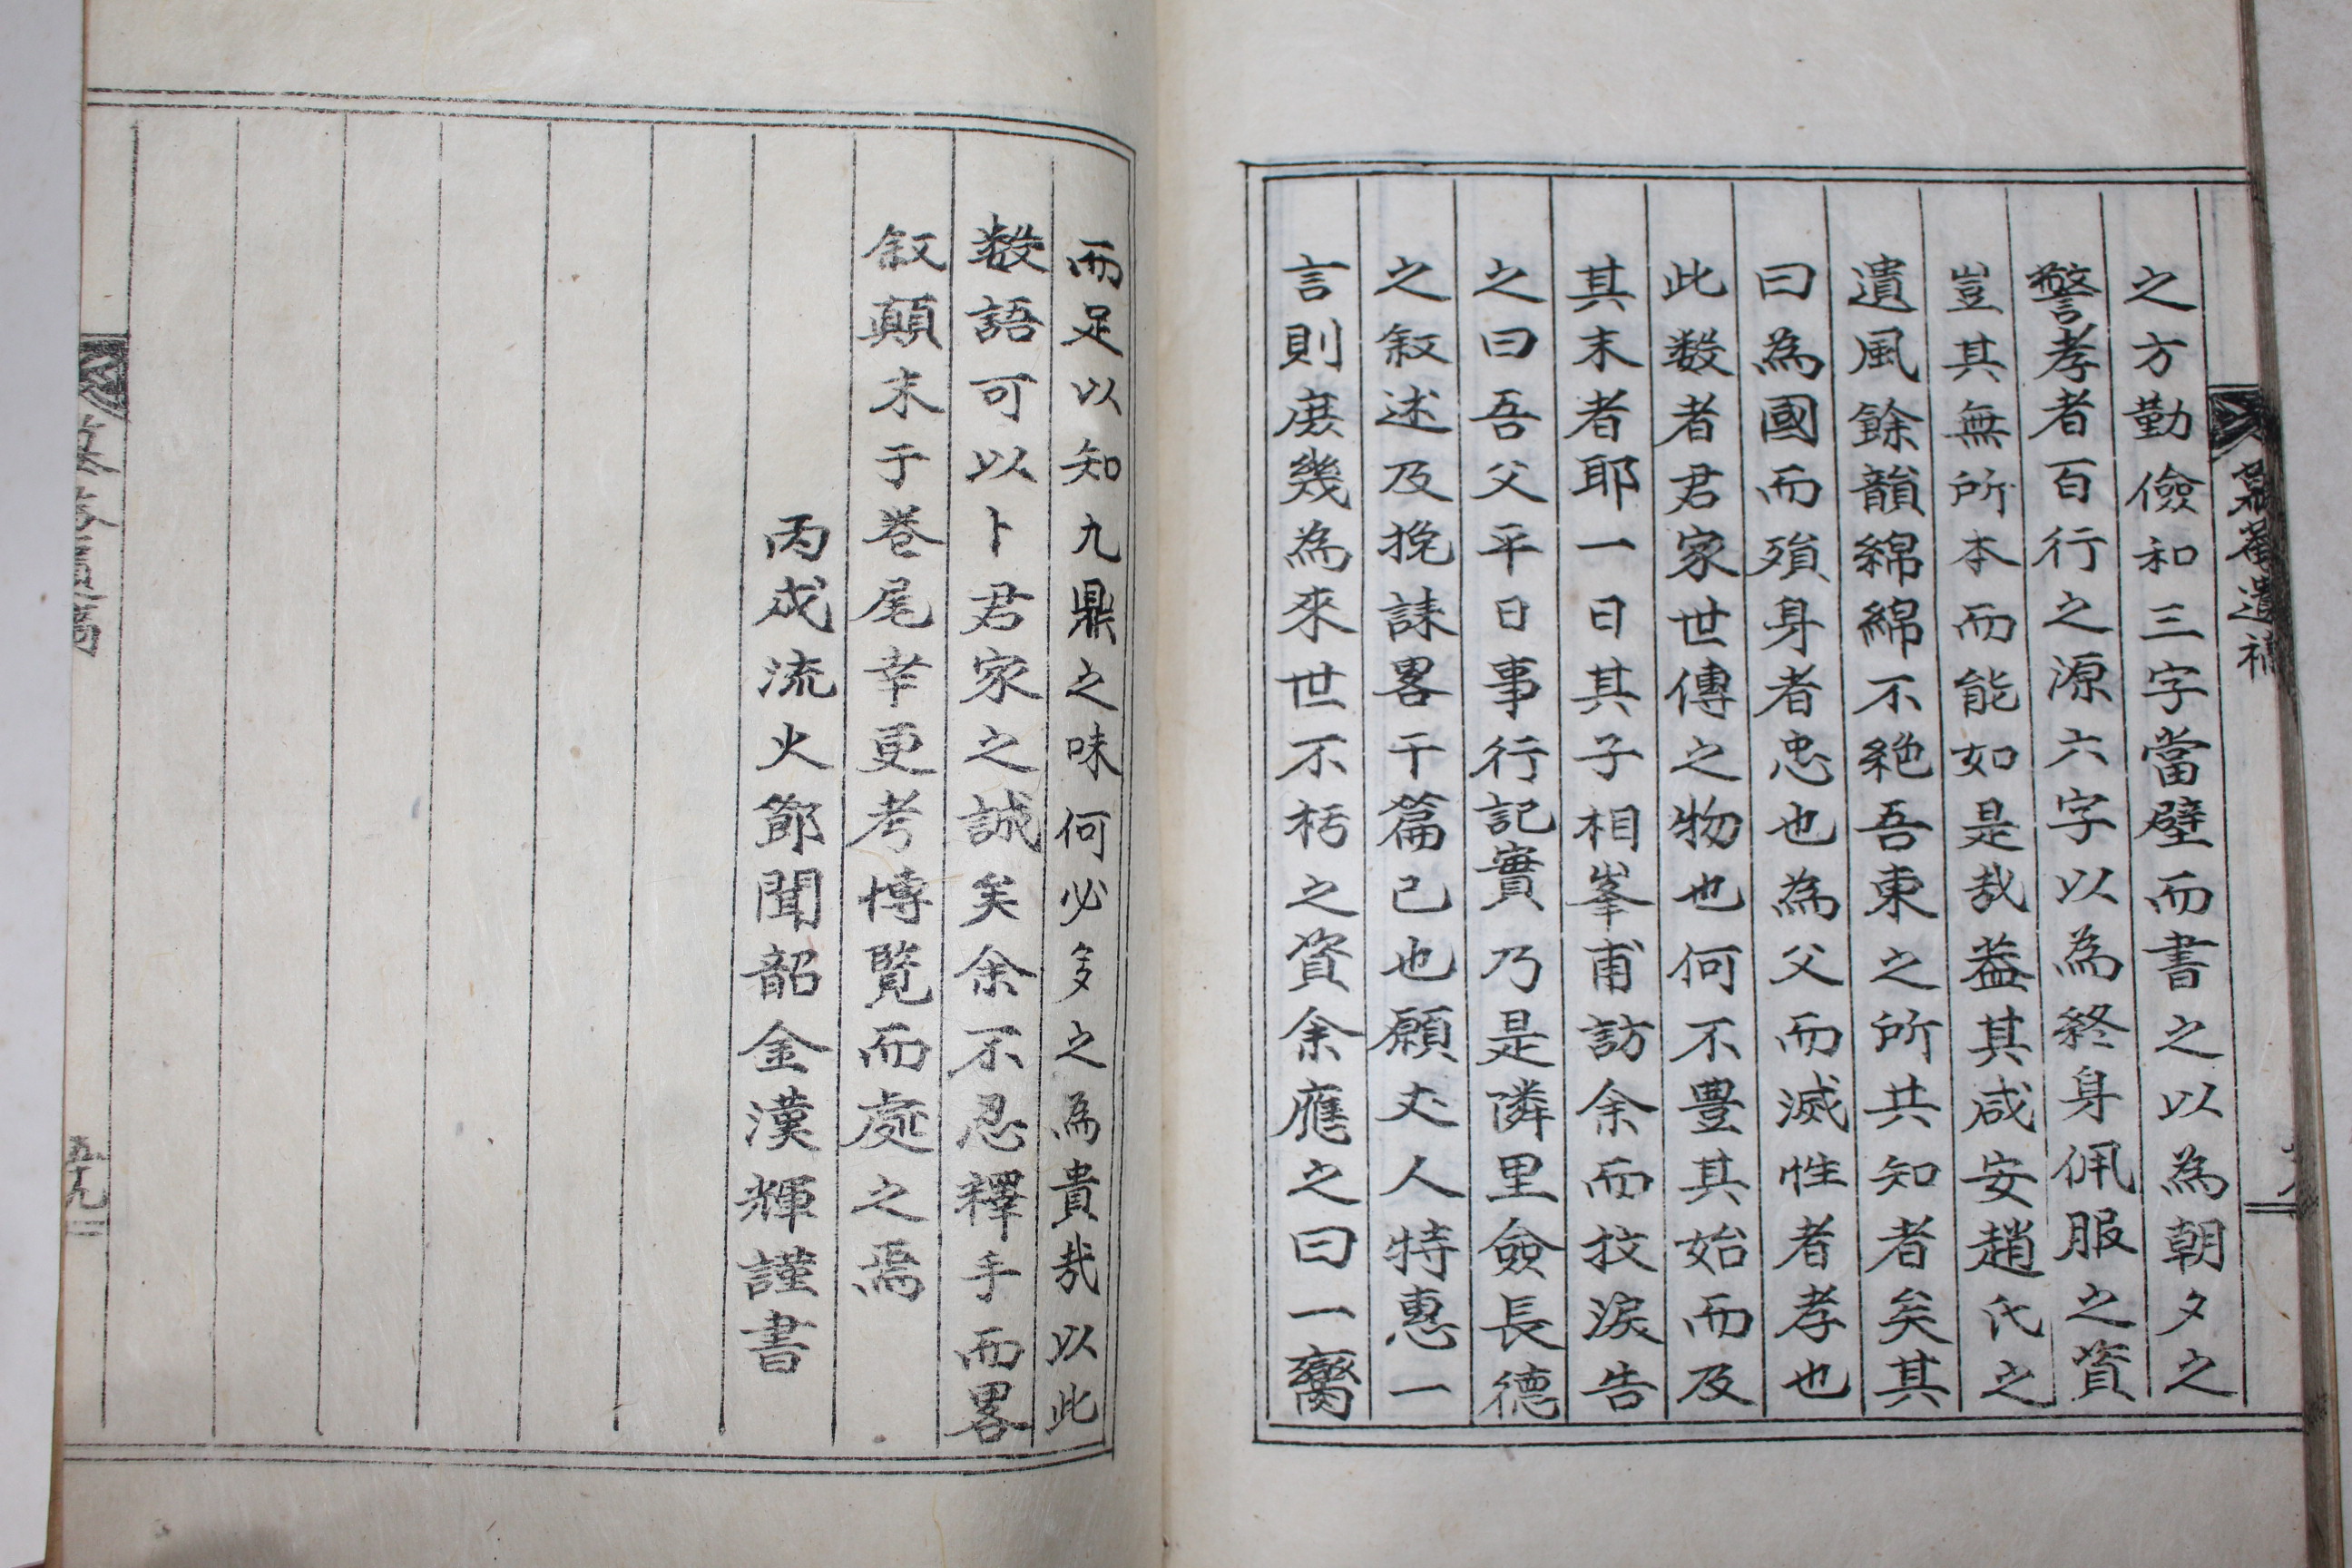 之方勤儉和三字當壁而書之以為朝夕之
警孝者百行之源六字以為終身佩服之資
豈其無所本而能如是哉蓋其咸安趙氏之
遺風餘韻綿綿不絶吾東之所共知者矣其
曰為國而殞身者忠也為父而滅性者孝也
此数者君家世傳之物也何不豊其始而及
其末者耶一日其子相峯甫訪余而抆淚告
之曰吾父平日事行記實乃是隣里僉長德
之叙述及挽誄畧干篇已也願丈人特惠一
言則庶幾為來世不朽之資余應之曰一臠
而足以知九鼎之味何必多之為貴哉以此
数語可以卜君家之誠矣余不忍釋手而畧
叙顛末于卷尾幸更考博覧而處之焉
丙戌流火節聞韶金漢輝謹書
遺稿
五十九